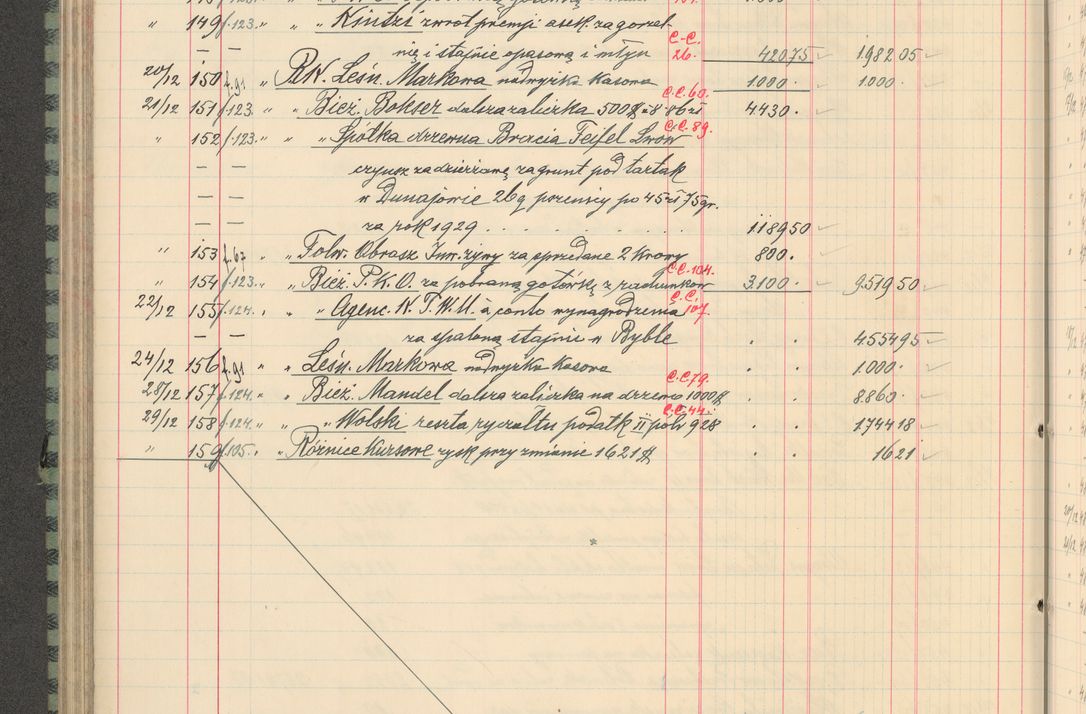 " 149 f.123. " " Kintzi zwrot premji asek. za gorzel-
— — nię i stajnię opasową i młyn C.C. 26. 42075 198205
20/12 150 f.91 " R.K. Leśn. Markowa nadwyżka Kasowa 1000. 1000.
21/12 151 f.123. " " Bież. Bokser dalsza zaliczka 500$ à 8.86 zł C.C.60. 4430.
" 152 f.123. " " " Spółka drzewna Bracia Feifel Lwów C.C.89.
— — czynsz za dzierżawę za grunt pod tartak
— — w Dunajowie 26 q pszenicy po 45 zł 75 gr.
— — za rok 1929 . . . . . . 118950
" 153 f.67 " Folw. Obrasz. Inw. żywy za sprzedane 2 krowy 800.
" 154 f.123. " " Bież. P.K.O. za pobraną gotówkę z rachunków C.C.104. 3100. 951950
22/12 155 f.124. " " Agenc. W.T.W.U. à conto wynagrodzenia C.C. 107.
— — za spaloną stajnię w Rybłe . . 455495
24/12 156 f.91 " " Leśn. Markowa nadwyżka Kasowa . . 1000.
28/12 157 f.124. " " Bież. Mandel dalsza zaliczka na drzewo 1000$ C.C.79. . . 8860.
29/12 158 f.124. " " " Wolski reszta ryczałtu podatk. II półr. 928 C.C.44. . . 174418
" 159 f.105. " " Różnice Kursowe zysk przy zmianie 1621$ . . 1621